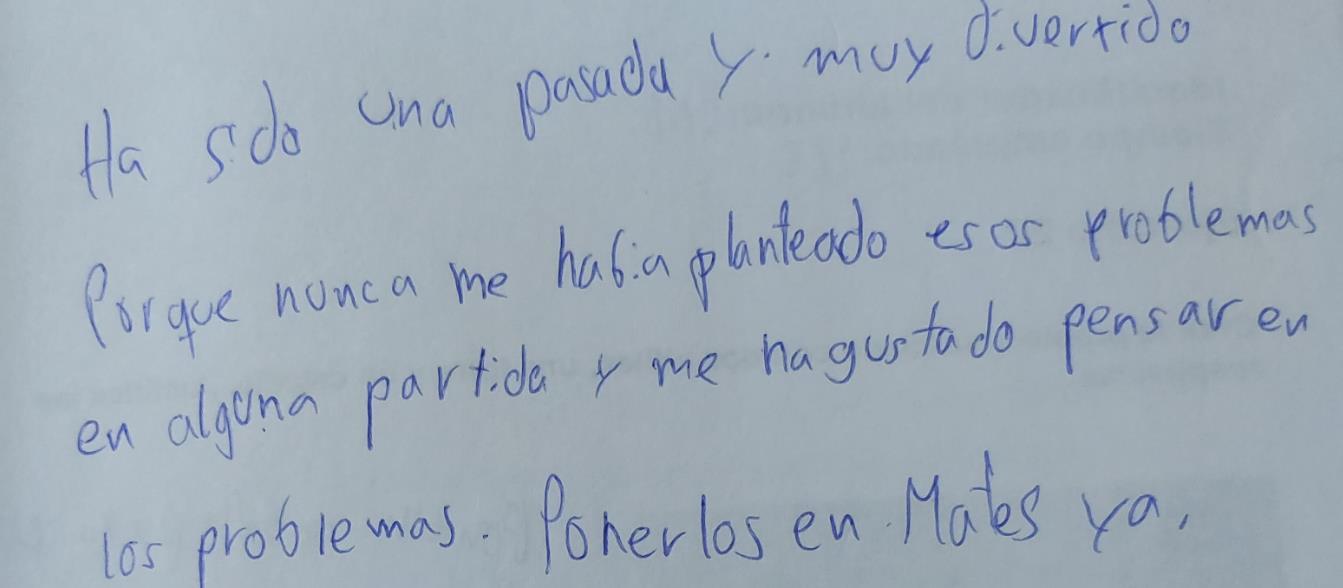 Ha sido una pasada y muy divertido
Porque nunca me habia planteado esos problemas
en alguna partida y me ha gustado pensar en
los problemas. Ponerlos en Mates ya.